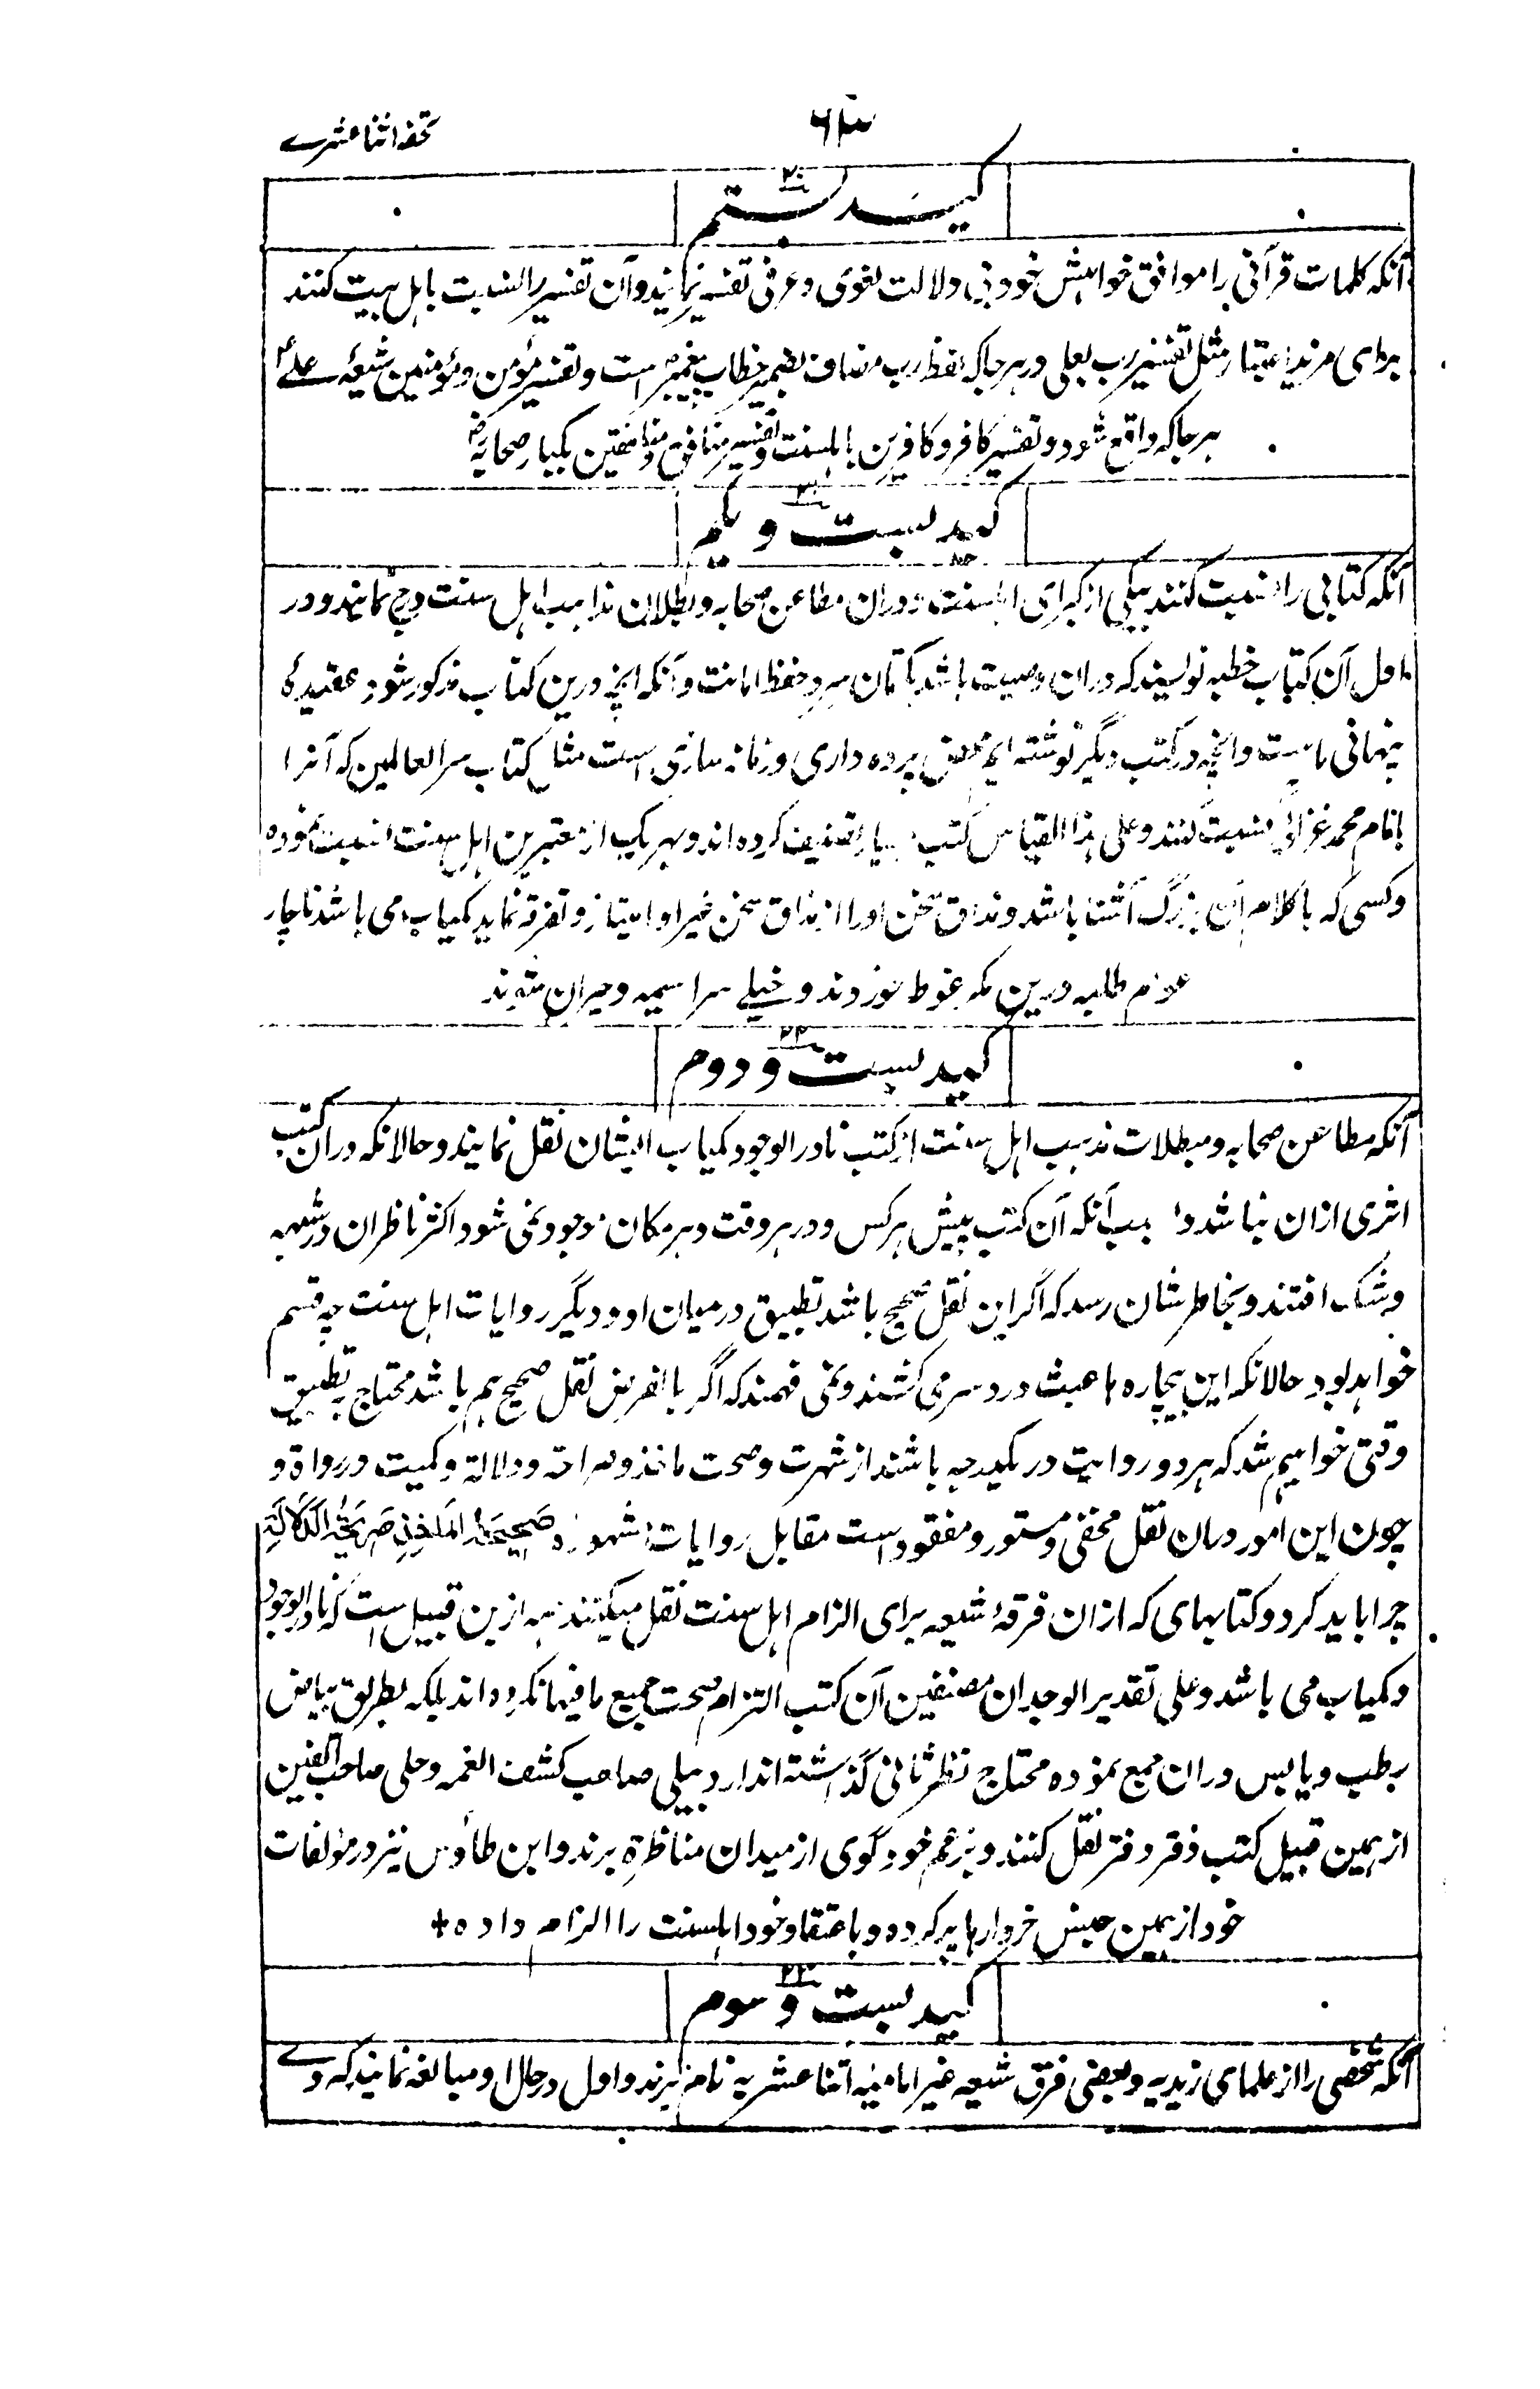 تحفه اثنا عشرے
کید بستم
آنکه کلمات قرآنی را موافق خواهش خود بی دلالت لغوی و عرفی تفسیر نمایند و آن تفسیر را نسبت باهل بیت کنند
برای مزید اعتبار مثل تفسیر رب بعلی در هر جا که لفظ رب مضاف بضمیر خطاب پیغمبرؐ است و تفسیر مؤمن و مؤمنین بشیعهٔ علےؑ
هر جا که واقع شود و تفسیر کافر و کافرین باهلسنت و تفسیر منافق و منافقین بکبار صحابهؓ
کید بست و یکم
آنکه کتابی را نسبت کنند بیکی از کبرای اهلسنت و دران مطاعن صحابه و بطلان مذاهب اهل سنت درج نمایند و در
اول آن کتاب خطبه نویسند که دران وصیت باشد بکتمان سر و حفظ امانت و آنکه آنچه درین کتاب مذکور شود عقیدهٔ
پنهانی ماست و آنچه در کتب دیگر نوشته ایم محض پرده داری و زمانه سازی است مثل کتاب سر العالمین که آنرا
بامام محمد غزالیؒ نسبت کنند و علی هذا القیاس کتب بسیار تصنیف کرده اند و بهر یک از معتبرین اهل سنت نسبت نموده
و کسی که با کلام آن بزرگ آشنا باشد و مذاق سخن او را از مذاق سخن غیر او امتیاز و تفرقه نماید کمیاب می باشد ناچار
عوام طلبه درین مکر غوطه خورند و خیلے سراسیمه و حیران شوند
کید بست و دوم
آنکه مطاعن صحابه و مبطلات مذهب اهل سنت از کتب نادر الوجود کمیاب ایشان نقل نمایند و حالانکه دران کتب
اثری ازان نباشد و بسبب آنکه آن کتب پیش هر کس و در هر وقت و هر مکان موجود نمی شود اکثر ناظران در شبهه
و شک افتند و بخاطر شان رسد که اگر این نقل صحیح باشد تطبیق در میان او و دیگر روایات اهل سنت چه قسم
خواهد بود حالانکه این بیچاره ها عبث درد سر می کشند و نمی فهمند که اگر بالفرض نقل صحیح هم باشد محتاج به تطبیق
وقتی خواهیم شد که هر دو روایت در یکدرجه باشند از شهرت و صحت ماخذ و صراحة و دلالة و کمیت در رواة و
چون این امور دران نقل مخفی و مستور و مفقود است مقابل روایات مشهوره صَحِیحَةُ المَاخَذِ صَرِیحَةُ الدَّلَالَةِ
چرا باید کرد و کتابهای که ازان فرقهٔ شیعه برای الزام اهل سنت نقل میکنند همه ازین قبیل است که نادر الوجود
و کمیاب می باشد و علی تقدیر الوجدان مصنفین آن کتب التزام صحت جمیع ما فیها نکرده اند بلکه بطریق بیاض
رطب و یابس دران جمع نموده محتاج نظر ثانی گذاشته اند اردبیلی صاحب کشف الغمه و حلی صاحب الفین
از همین قبیل کتب دفتر دفتر نقل کنند و بزعم خود گوی از میدان مناظره برند و ابن طاؤس نیز در مؤلفات
خود از همین جنس خروارها پر کرده و باعتقاد خود اهلسنت را الزام داده +
کید بست و سوم
آنکه شخصی را از علمای زیدیه و بعضی فرق شیعه غیر امامیه اثنا عشریه نام برند و اول در حال او مبالغه نمایند که وے